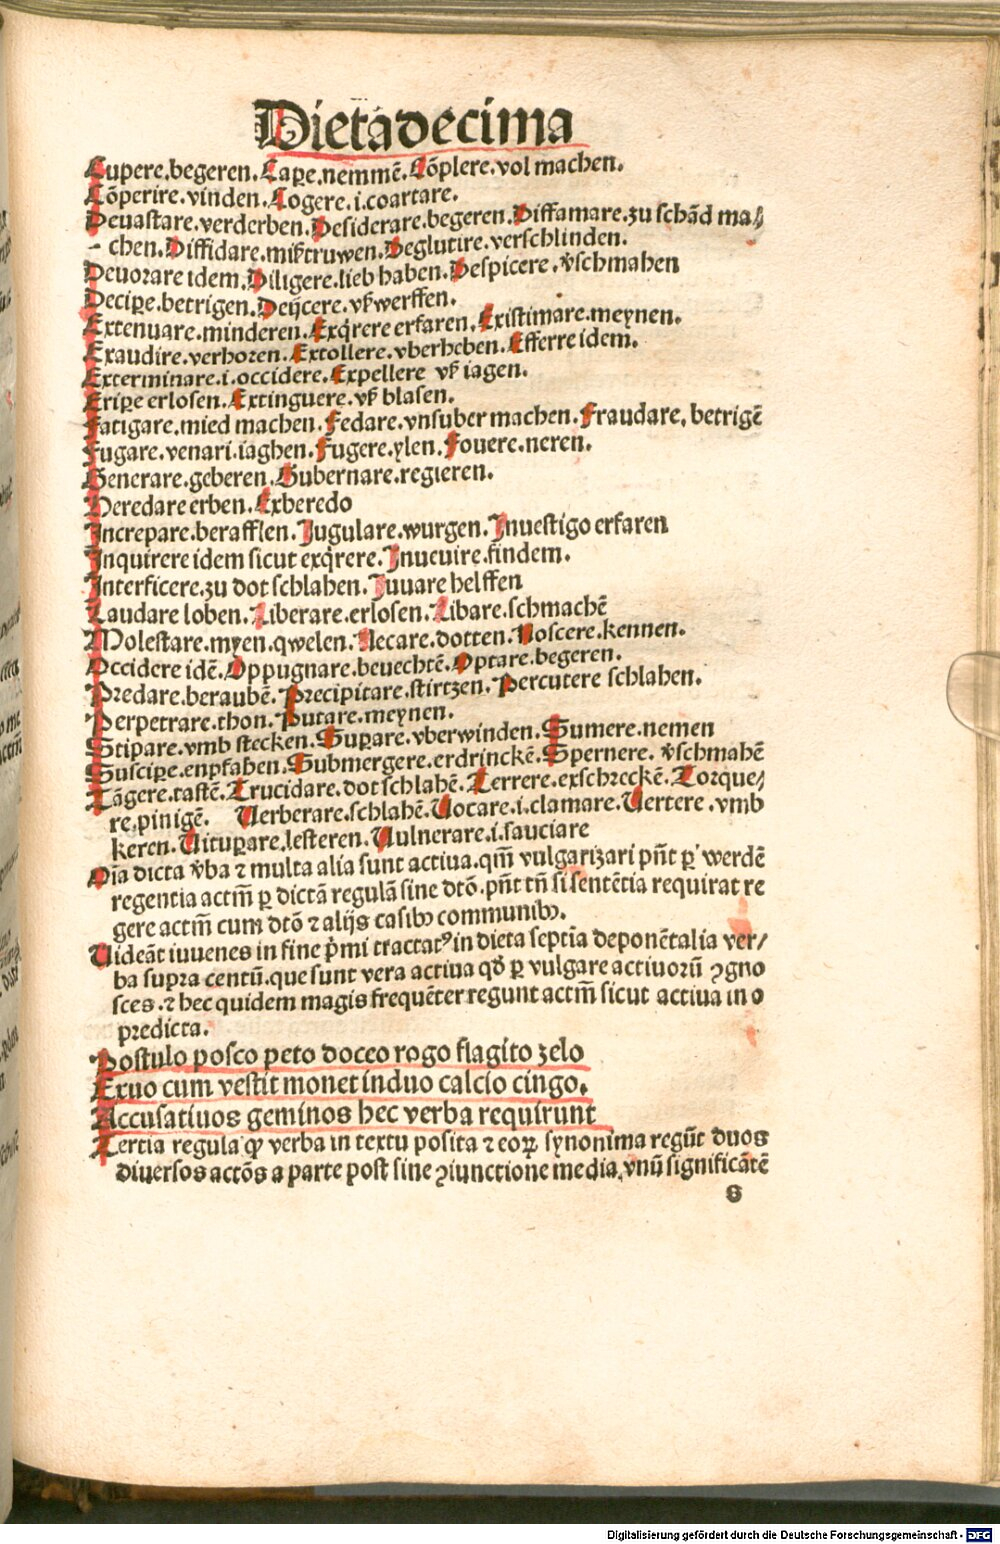 Dieta decima
Cupere.begeren.Cape.nemmē.Cōplere.vol machen.
Cōperire.vinden.Cogere.i.coartare.
Deuastare.verderben.Desiderare.begeren.Diffamare.zu schād ma⸗
chen.Diffidare.mißtruwen.Deglutire.verschlinden.
Deuorare idem.Diligere.lieb haben.Despicere.v̄schmahen
Decipe.betrigen.Deijcere.vß werffen.
Extenuare.minderen.Exqrere erfaren.Existimare.meynen.
Exaudire.verhoren.Extollere.vberheben.Efferre idem.
Exterminare.i.occidere.Expellere vß iagen.
Eripe erlosen.Extinguere.vß blasen.
Fatigare.mied machen.Fedare.vnsuber machen.Fraudare.betrigē
Fugare.venari.iaghen.Fugere.ylen.Fouere.neren.
Generare.geberen.Gubernare.regieren.
Heredare erben.Exheredo
Increpare.berafflen.Jugulare.wurgen.Inuestigo erfaren
Inquirere idem sicut exqrere.Inuenire.findem.
Interficere.zu dot schlahen.Juuare helffen
Laudare loben.Liberare.erlosen.Libare.schmachē
Molestare.myen.qwelen.Necare.dotten.Noscere.kennen.
Occidere idē.Oppugnare.beuechtē.Optare.begeren.
Predare.beraubē.Precipitare.stirtzen.Percutere schlahen.
Perpetrare.thon.Putare.meynen.
Stipare.vmb stecken.Supare.vberwinden.Sumere.nemen
Suscipe.enpfahen.Submergere.erdrinckē.Spernere.v̄schmahē
Tāgere.tastē.Trucidare.dot schlahē.Terrere.erschreckē.Torque⸗
re.pinigē. Verberare.schlahē.Vocare.i.clamare.Vertere.vmb
keren.Vitupare.lesteren.Vulnerare.i.sauciare
Oīa dicta v̄ba ⁊ multa alia sunt actiua.qm̄ vulgarizari pn̄t p werdē
regentia actm̄ p dictā regulā sine dtō.pn̄t tn̄ si sentētia requirat re
gere actm̄ cum dtō ⁊ alijs casibꝫ communibꝫ.
Uideāt iuuenes in fine p̄mi tractatꝰ in dieta septīa deponētalia ver⸗
ba supra centū.que sunt vera actiua qđ p vulgare actiuorū ꝯgno
sces.⁊ hec quidem magis frequēter regunt actm̄ sicut actiua in o
predicta.
Postulo posco peto doceo rogo flagito zelo
Exuo cum vestit monet induo calcio cingo.
Accusatiuos geminos hec verba requirunt
Tertia regula ꝙ verba in textu posita ⁊ eoꝝ synonima regūt duos
diuersos actōs a parte post sine ꝯiunctione media.vnū significātē
g
Digitalisierung gefördert durch die Deutsche Forschungsgemeinschaft - DFG